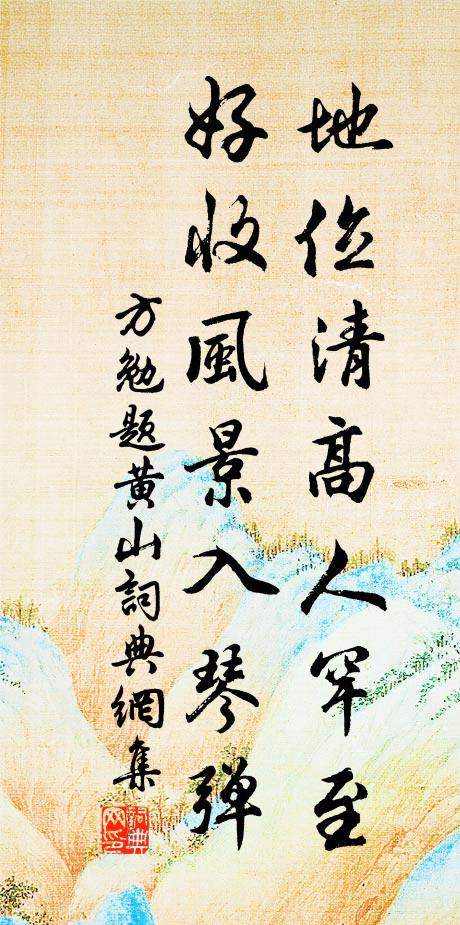 地位清高人罕至
好收風景入琴彈
方勉題黃山詞典網集
詞典網印